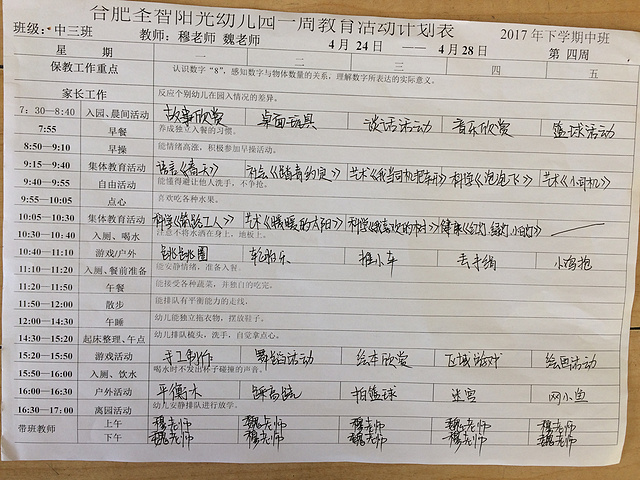 合肥全智阳光幼儿园一周教育活动计划表
班级：中三班 教师：穆老师 魏老师 4月24日 —— 4月28日 2017年下学期中班 第四周
星期 一 二 三 四 五
保教工作重点 认识数字“8”，感知数字与物体数量的关系，理解数字所表达的实际意义。
家长工作 反应个别幼儿在园入情况的差异。
7：30—8:40 入园、晨间活动 故事欣赏 桌面玩具 谈话活动 音乐欣赏 篮球活动
7:55 早餐 养成独立入餐的习惯。
8:50—9:10 早操 能情绪高涨，积极参加早操活动。
9:15—9:40 集体教育活动 语言《春天》 社会 艺术 科学《泡泡飞》 艺术《小司机》
9:40—9:55 自由活动 能懂得避让他人洗手，不争抢。
9:55—10:05 点心 喜欢吃各种水果。
10:05—10:30 集体教育活动 科学《筑路工人》 艺术《暖暖的太阳》 科学 健康《红灯、绿灯、小白灯》
10:30—10:40 入厕、喝水 注意不将水洒在身上，地板上。
10:40—11:10 游戏/户外 跳跳圈 轮胎乐 推小车 丢手绢 小鸡抱
11:10—11:20 入厕、餐前准备 能安静情绪，准备入餐。
11:20—11:50 午餐 能接受各种蔬菜，并独自的吃完。
11:50—12:00 散步 能排队有平衡能力的走线，
12:00—14:30 午睡 幼儿能独立拖衣物，摆放鞋子。
14:30—15:20 起床整理、午点 幼儿排队梳头，洗手，自觉拿点心。
15:20—15:50 游戏活动 手工制作 舞蹈活动 绘本欣赏 区域游戏 绘画活动
15:50—16:00 入厕、饮水 喝水时不发出杯子碰撞的声音。
16:00—16:30 户外活动 平衡木 踩高跷 拍篮球 迷宫 网小鱼
16:30—17:00 离园活动 幼儿安静排队进行放学。
带班教师 上午 穆老师 魏老师 穆老师 魏老师 穆老师
下午 魏老师 穆老师 魏老师 穆老师 魏老师